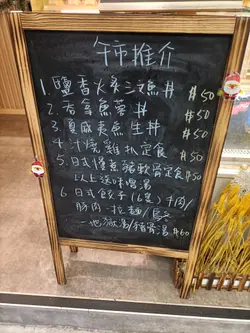 午市推介
1. 鹽香火炙三文魚丼 $50
2. 吞拿魚蓉丼 $50
3. 夏威夷魚生丼 $50
4. 汁燒雞扒定食 $50
5. 日式慢煮豬軟骨定食 $50
以上送味噌湯
6. 日式餃子(6隻)牛肉/
豚肉-拉麵/烏冬
-地獄湯/豬骨湯 $60